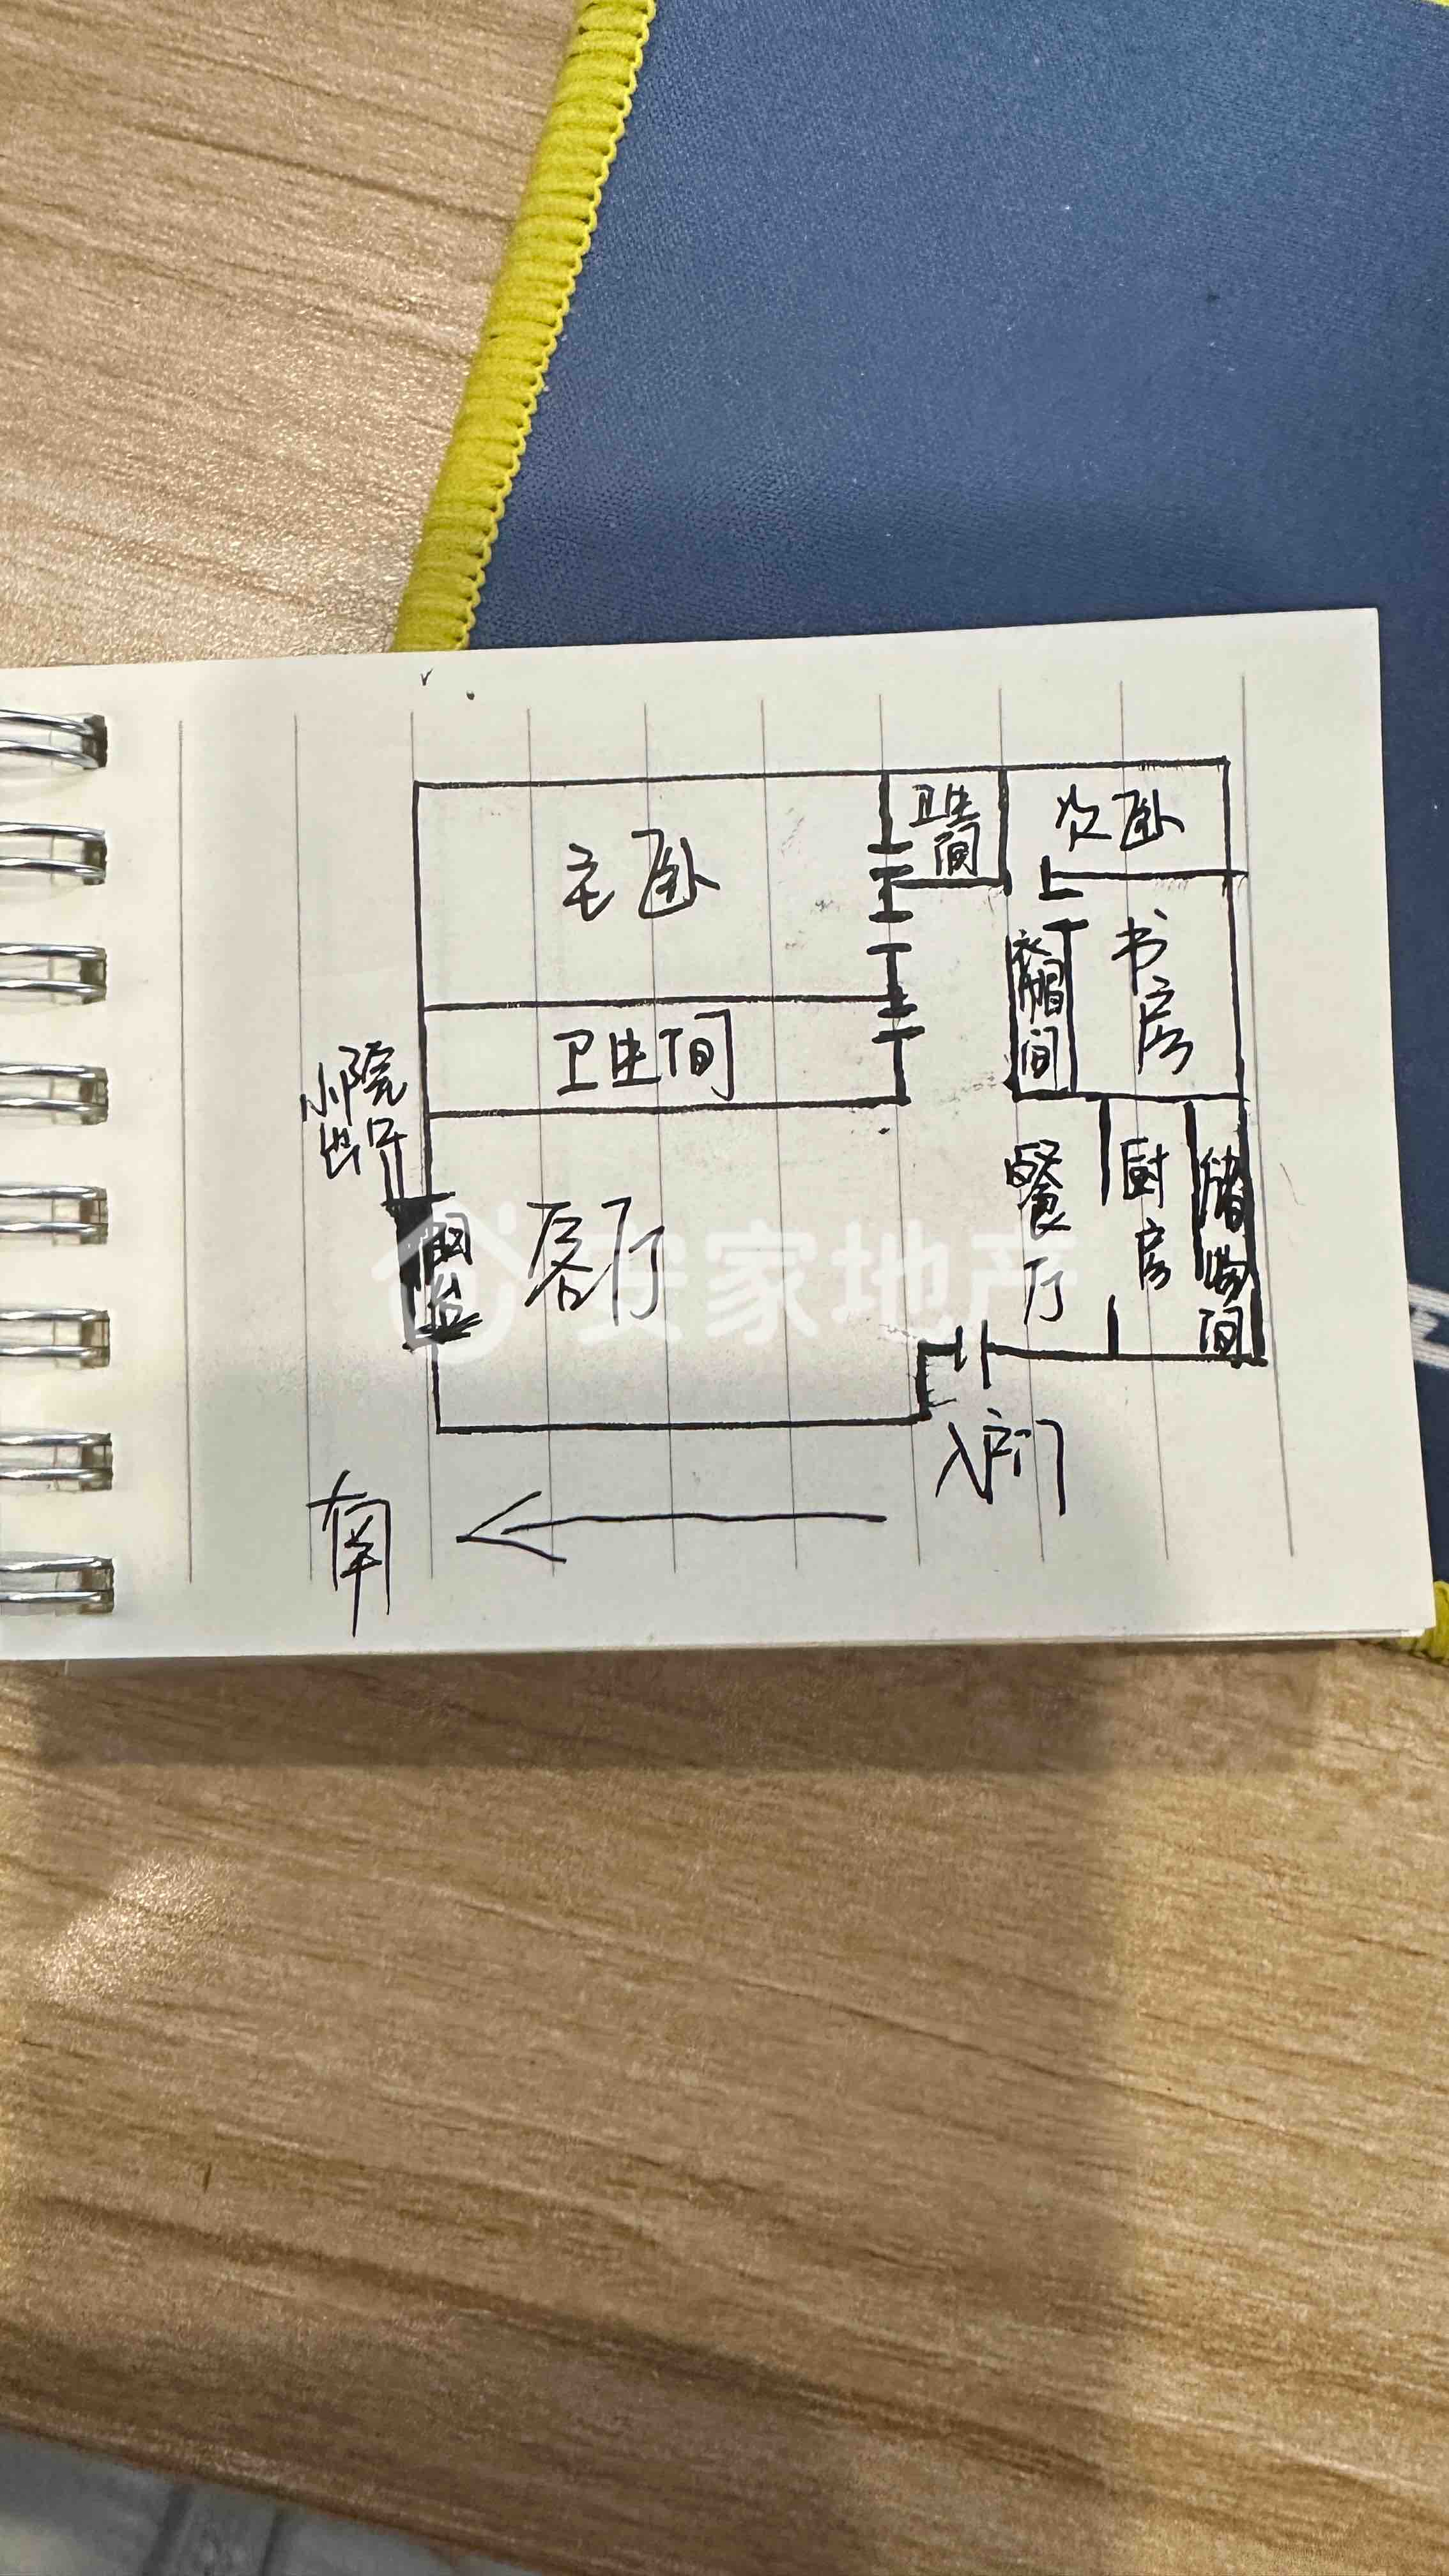 主卧
卫生间
次卧
衣帽间
书房
卫生间
小院
出口
阳台
客厅
餐厅
厨房
储物间
安家地产
入户门
南